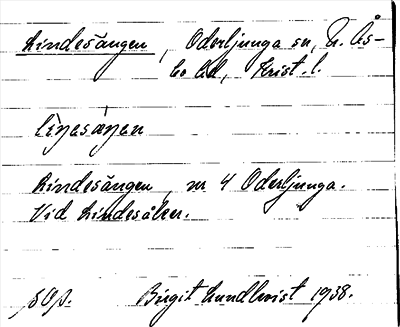 Lindesängen, Oderljunga sn, N. Ås-
bo hd, Krist. l.
liṇesäṇen
Lindesängen, nr 4 Oderljunga.
Vid Lindesåker.
Birgit Lundkvist 1938.